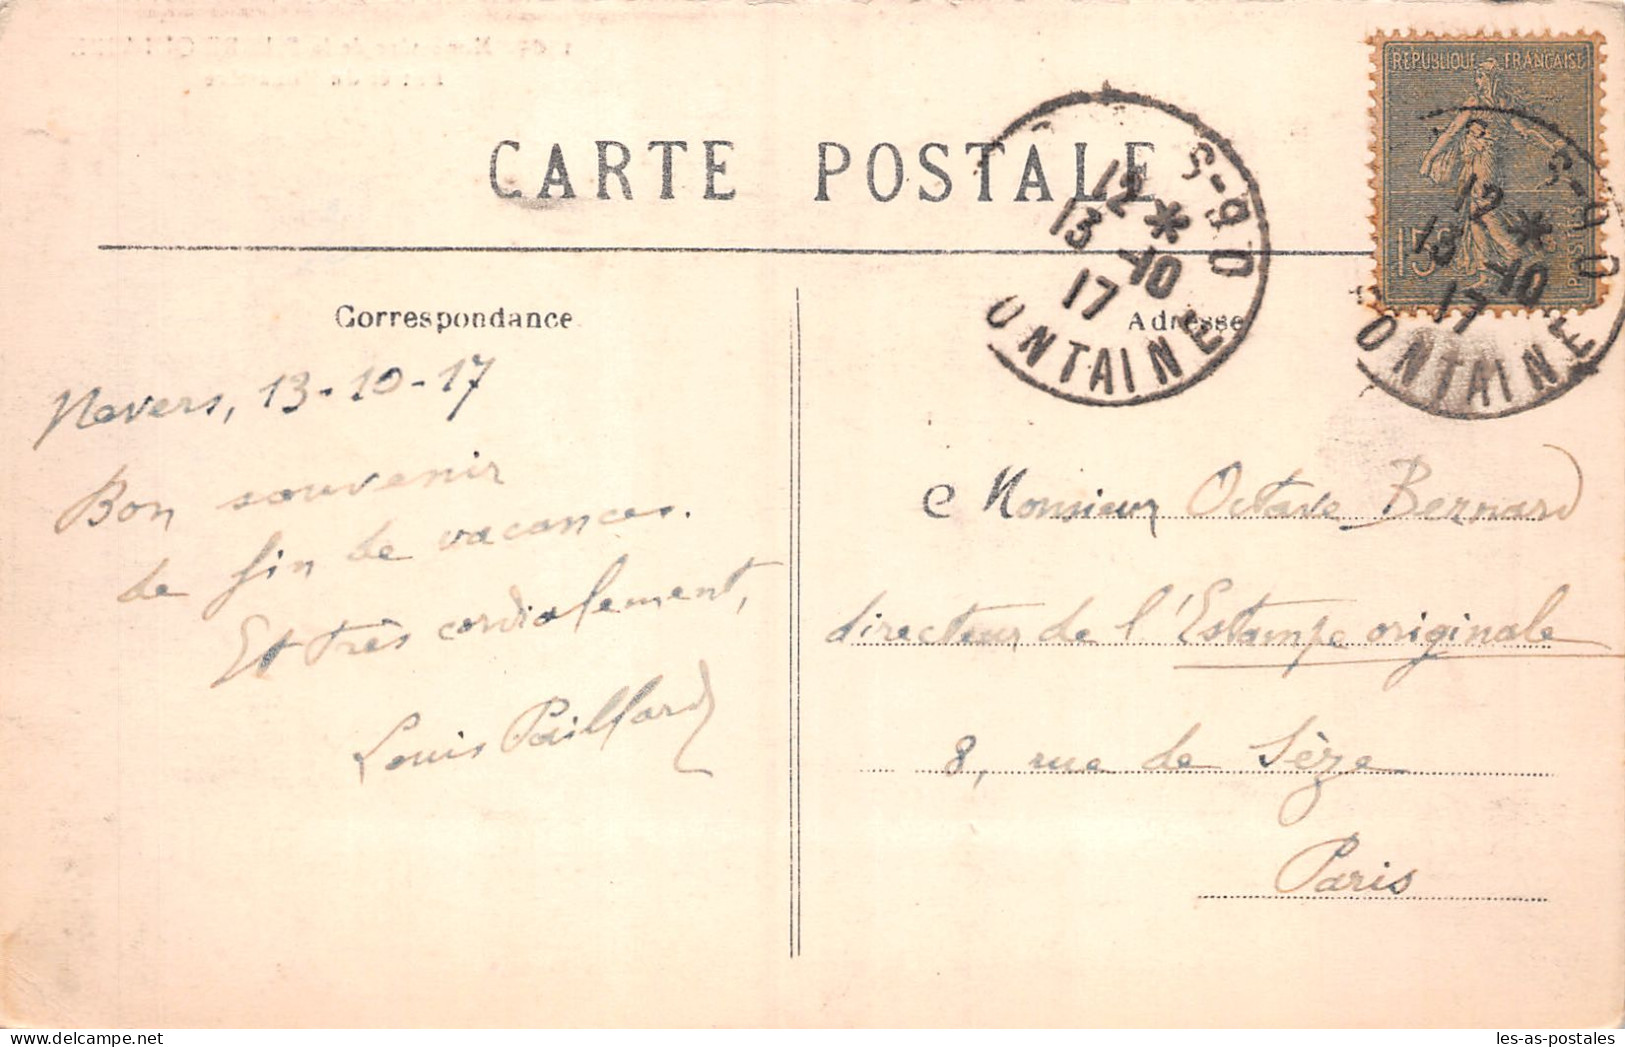 CARTE POSTALE
RÉPUBLIQUE FRANÇAISE
15
POSTES
12 *
13 -10
17
ONTAINE
12 *
13 -10
17
ONTAINE
Correspondance
Adresse
Nevers, 13-10-17
Bon souvenir
de fin de vacances.
Et très cordialement,
Louis Paillard
Monsieur Octave Bernard
directeur de l'Estampe originale
8, rue de Sèze
Paris
les-as-postales